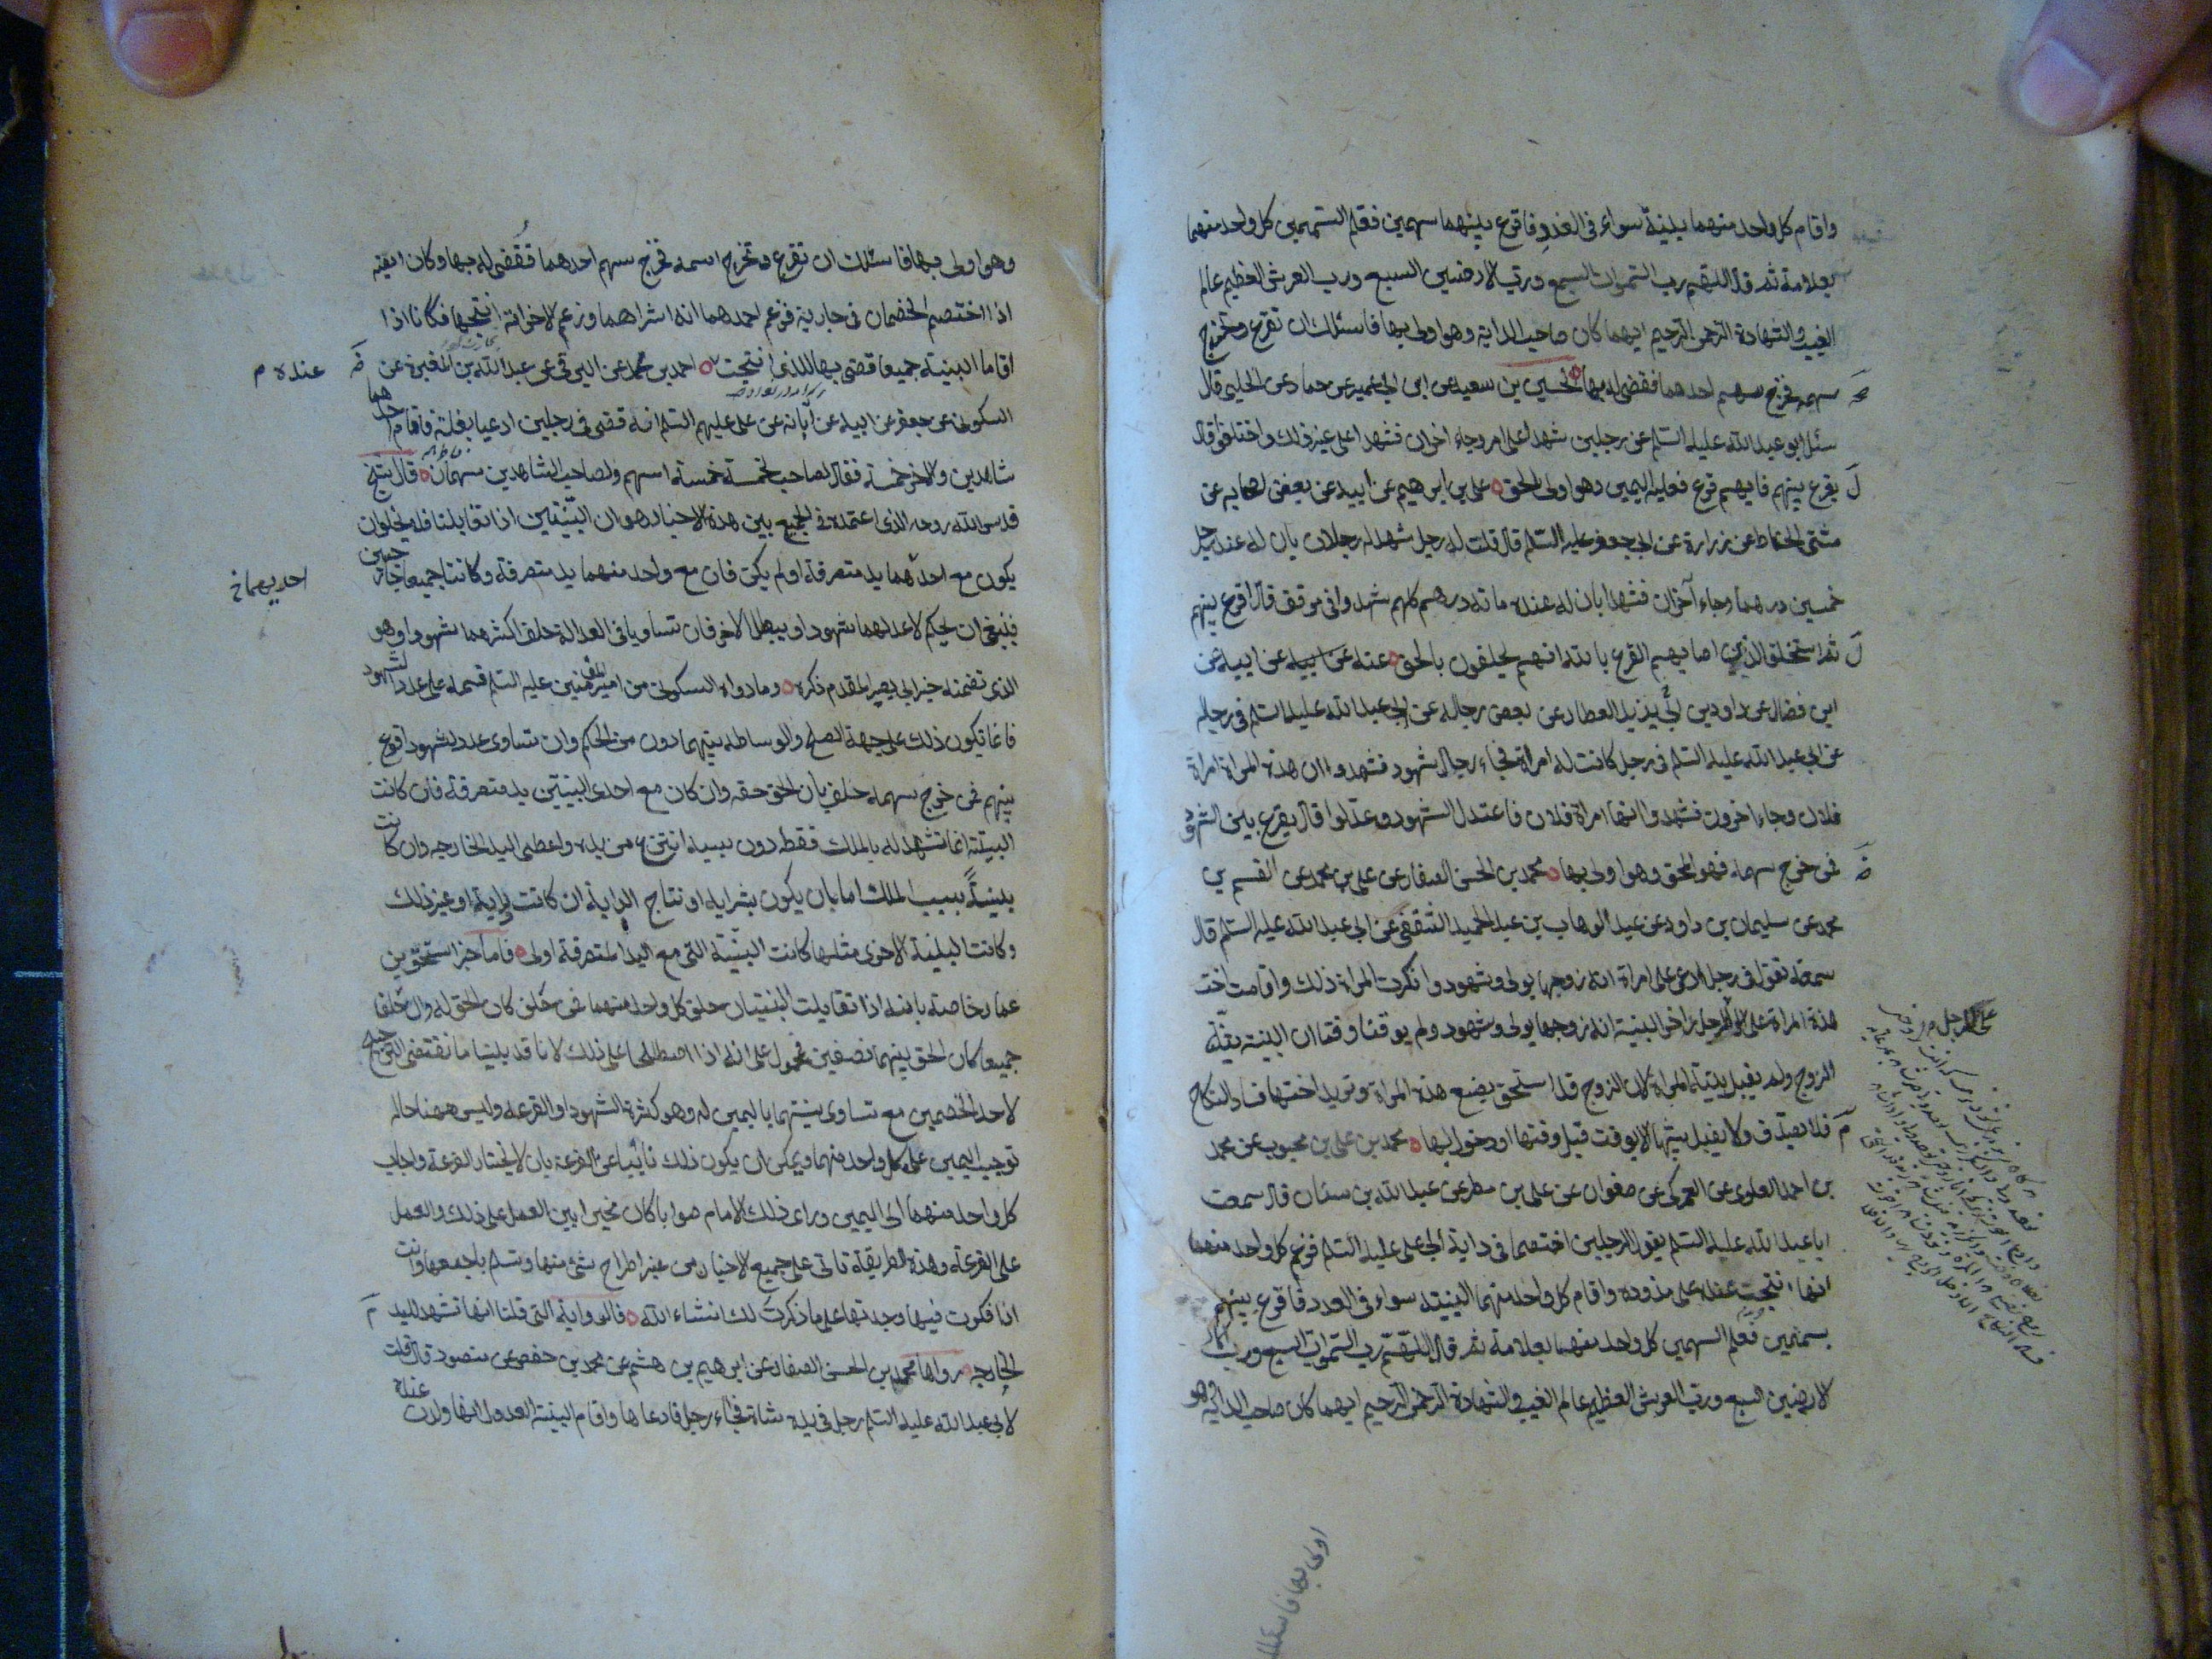 واقام كل واحد منهما بينة سواء فى العدد فاقرع بينهما سهمين فعلم السهمين كل واحد منهما
بعلامة ثم قال اللهم رب السموات السبع ورب الارضين السبع ورب العرش العظيم عالم
الغيب والشهادة الرحمن الرحيم ايهما كان صاحب الدابة وهو اولى بها فاسئلك ان تقرع وتخرج
سهمه فخرج سهم احدهما فقضى له بها الحسين بن سعيد عن ابن ابى عمير عن حماد عن الحلبى قال
سئل ابو عبد الله عليه السلم عن رجلين شهدا على امر وجاء اخران فشهدا على غير ذلك واختلفوا قال
يقرع بينهم فايهم قرع فعليه اليمين وهو اولى بالحق على بن ابرهيم عن ابيه عن بعض اصحابه عن
مثنى الحناط عن زرارة عن ابى جعفر عليه السلم قال قلت له رجل شهد له رجلان بان له عند رجل
خمسين درهما وجاء آخران فشهدا بان له عنده مائة درهم كلهم شهدوا فى موقف قال اقرع بينهم
ثم استحلف الذين اصابهم القرع بالله انهم يحلفون بالحق عنه عن ابيه عن ابيه عن
ابن فضال عن داود بن ابى يزيد العطار عن بعض رجاله عن ابى عبد الله عليه السلم فى رجل
عن ابى عبد الله عليه السلم فى رجل كانت له امراة فجاء رجال شهود فشهدوا ان هذه المراة امراة
فلان وجاء اخرون فشهدوا انها امراة فلان فاعتدل الشهود وعدلوا قال يقرع بين الشهود
فمن خرج سهمه فهو المحق وهو اولى بها محمد بن الحسن الصفار عن على بن محمد عن القسم بن
محمد عن سليمان بن داود عن عبد الوهاب بن عبد الحميد الثقفى عن ابى عبد الله عليه السلم قال
سمعته يقول فى رجل ادعى على امراة انه زوجها بولى وشهود وانكرت المراة ذلك واقامت اخت
هذه المراة على الرجل الاخر البينة انه زوجها بولى وشهود ولم يوقتا وقتا ان البينة بينة
الزوج ولم يقبل بينة المراة لان الزوج قد استحق بضع هذه المراة وتريد اختها فساد النكاح
فلا تصدق ولا يقبل بينتها الا بوقت قبل وقتها او دخول بها محمد بن على بن محبوب عن محمد
بن احمد العلوى عن العمركى عن صفوان عن على بن مطر عن عبد الله بن سنان قال سمعت
ابا عبد الله عليه السلم يقول ان رجلين اختصما فى دابة الى على عليه السلم فزعم كل واحد منهما
انها نتجت عنده على مذوده واقام كل واحد منهما البينة سواء فى العدد فاقرع بينهم
بسهمين فعلم السهمين كل واحد منهما بعلامة ثم قال اللهم رب السموات السبع ورب
الارضين السبع ورب العرش العظيم عالم الغيب والشهادة الرحمن الرحيم ايهما كان صاحب الدابة وهو
على الرجل
اولى بها فاسئلك
وهو اولى بها فاسئلك ان تقرع وتخرج اسمه فخرج سهم احدهما فقضى له بها وكان ايضه
اذا اختصم الخصمان فى جارية فزعم احدهما انه اشتراها وزعم الاخر انه انتجها فكانا اذا
اقاما البينة جميعا قضى بها للذى انتجت احمد بن محمد عن البرقى عن عبد الله بن المغيرة عن
عنده م
السكونى عن جعفر عن ابيه عن آبائه عن على عليهم السلم انه قضى فى رجلين ادعيا بغلة فاقام احدهما
شاهدين والاخر خمسة فقال لصاحب الخمسة خمسة اسهم ولصاحب الشاهدين سهمان قال الشيخ
قدس الله روحه الذى اعتمده فى الجمع بين هذه الاخبار هو ان البينتين اذا تقابلتا فلا يخلو ان
يكون مع احدهما يد متصرفة او لم يكن فان مع واحد منهما يد متصرفة وكانتا جميعا خارجتين
احديهما خ
فينبغى ان يحكم لاعدلهما شهودا ويبطل الاخر فان تساويا فى العدالة حلف اكثرهما شهودا وهو
الذى تضمنه خبر ابى بصير المقدم ذكره وما رواه السكونى من امير المؤمنين عليه السلم قسمه على عدد الشهود
فانما تكون ذلك على جهة الصلح والوساطه بينهما دون من الحكم وان تساوى عدد الشهود اقرع
بينهم فمن خرج سهمه حلف بان الحق حقه وان كان مع احدى البينتين يد متصرفة فان كانت
البينة انما تشهد له بالملك فقطه دون سببه انتزع من يده واعطى اليد الخارجه وان كانت
بينة بسبب الملك اما بان يكون بشرايه او نتاج الدابة ان كانت دابة او غير ذلك
وكانت البينة الاخرى مثلها كانت البينة التى مع اليد المتصرفة اولى فاما خبر اسحق بن
عمار خاصة بانه اذا تقابلت البينتان حلف كل واحد منهما فمن حلف كان الحق له وان حلفا
جميعا كان الحق بينهما نصفين فمحمول على انه اذا اصطلحا على ذلك لانا قد بينا ما نقتضى الترجيح
لاحد الخصمين مع تساوى بينتهما باليمين له وهو كثرة الشهود او القرعه وليس ههنا حاله
توجب اليمين على كل واحد منهما ويمكن ان يكون ذلك نائبا عن القرعة بان لا يختار القرعة واجاب
كل واحد منهما الى اليمين وراى ذلك الامام صوابا كان مخيرا بين العمل على ذلك والعمل
على القرعة وهذه الطريقة تاتى على جميع الاخبار من غير اطراح شئ منها وتسلم باجمعها وانت
اذا فكرت فيها وجدتها على ما ذكرت لك انشاء الله فالرواية التى قلنا انها تشهد لليد
الخارجه رواها محمد بن الحسن الصفار عن ابرهيم بن هشم عن محمد بن حفص عن منصور قال قلت
لابى عبد الله عليه السلم رجل فى يده شاة فجاء رجل فادعاها واقام البينة العدول انها ولدت عنده